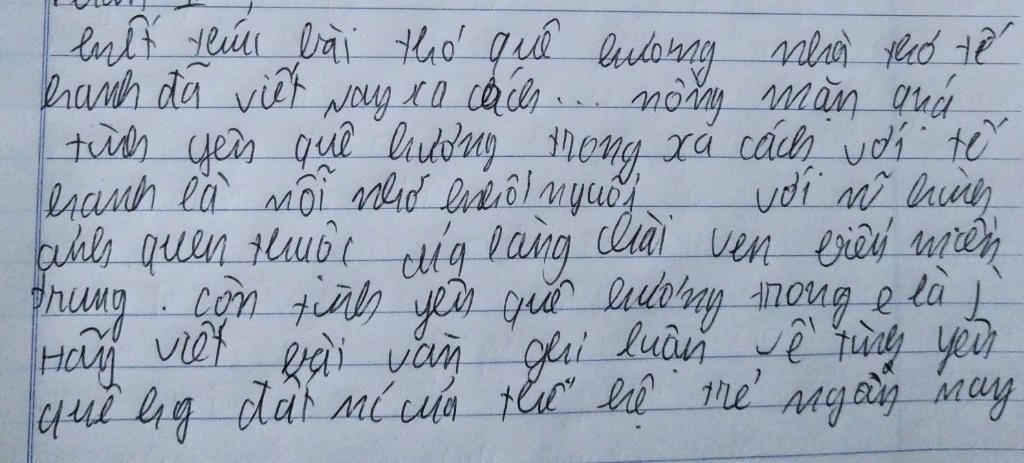 kết thúc bài thơ quê hương nhà thơ tế
hanh đã viết nay xa cách... nồng mặn quá
tình yên quê hương trong xa cách với tế
hanh là nỗi nhớ khôi nguôi với nĩ hình
ảnh quen thuộc của làng chài ven biển miền
trung. còn tình yên quê hương trong e là j
Hãy viết bài văn ghi luận về tình yên
quê hg đất nc của thế hệ trẻ ngần nay